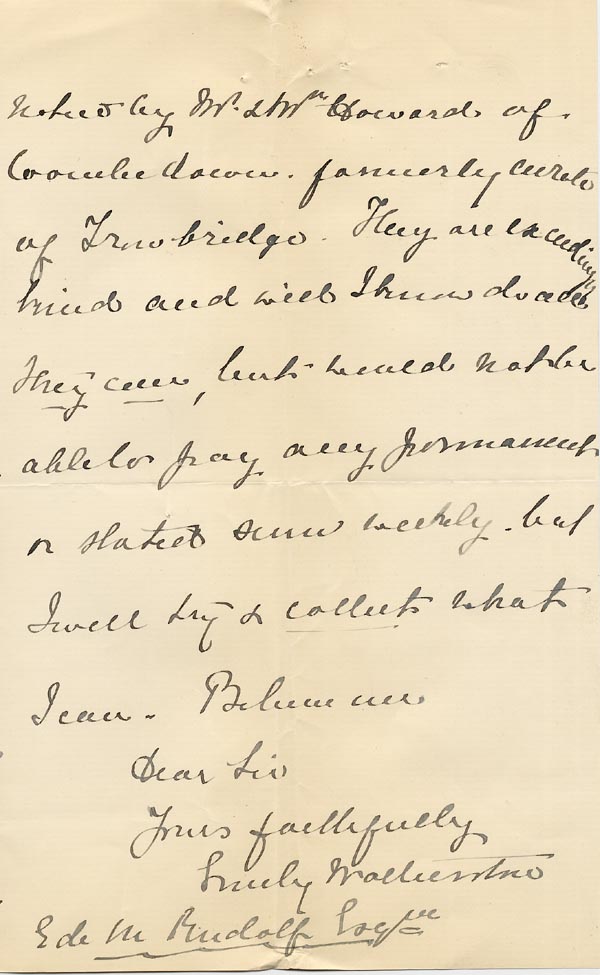 noticed by Mr & Mrs Howard of
Coombe down. formerly curate
of Trowbridge. They are exceedingly
kind and will I know do all
they can, but would not be
able to pay any permanent
or stated sum weekly. but
I will try & collect what
I can. Believe me
Dear Sir
Yours faithfully
Emily
Ed. M Rudolf Esqre